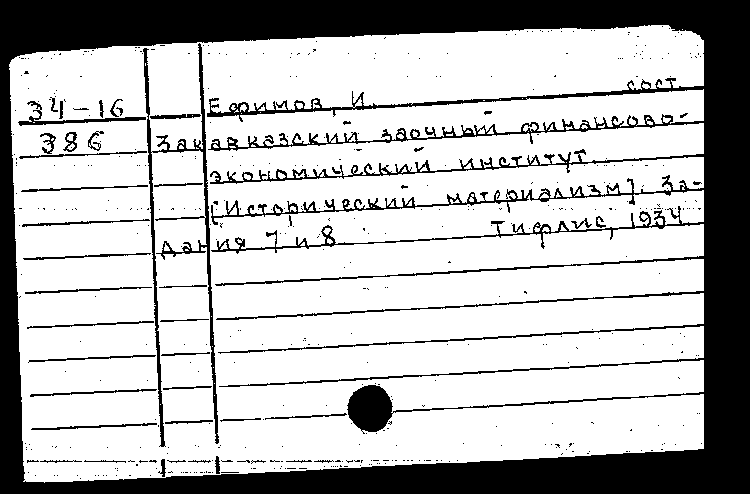 34-16 Ефимов, И. сост.
386 Закавказский заочный финансово-
экономический институт.
[Исторический материализм]. За-
дания 7 и 8 Тифлис, 1934.